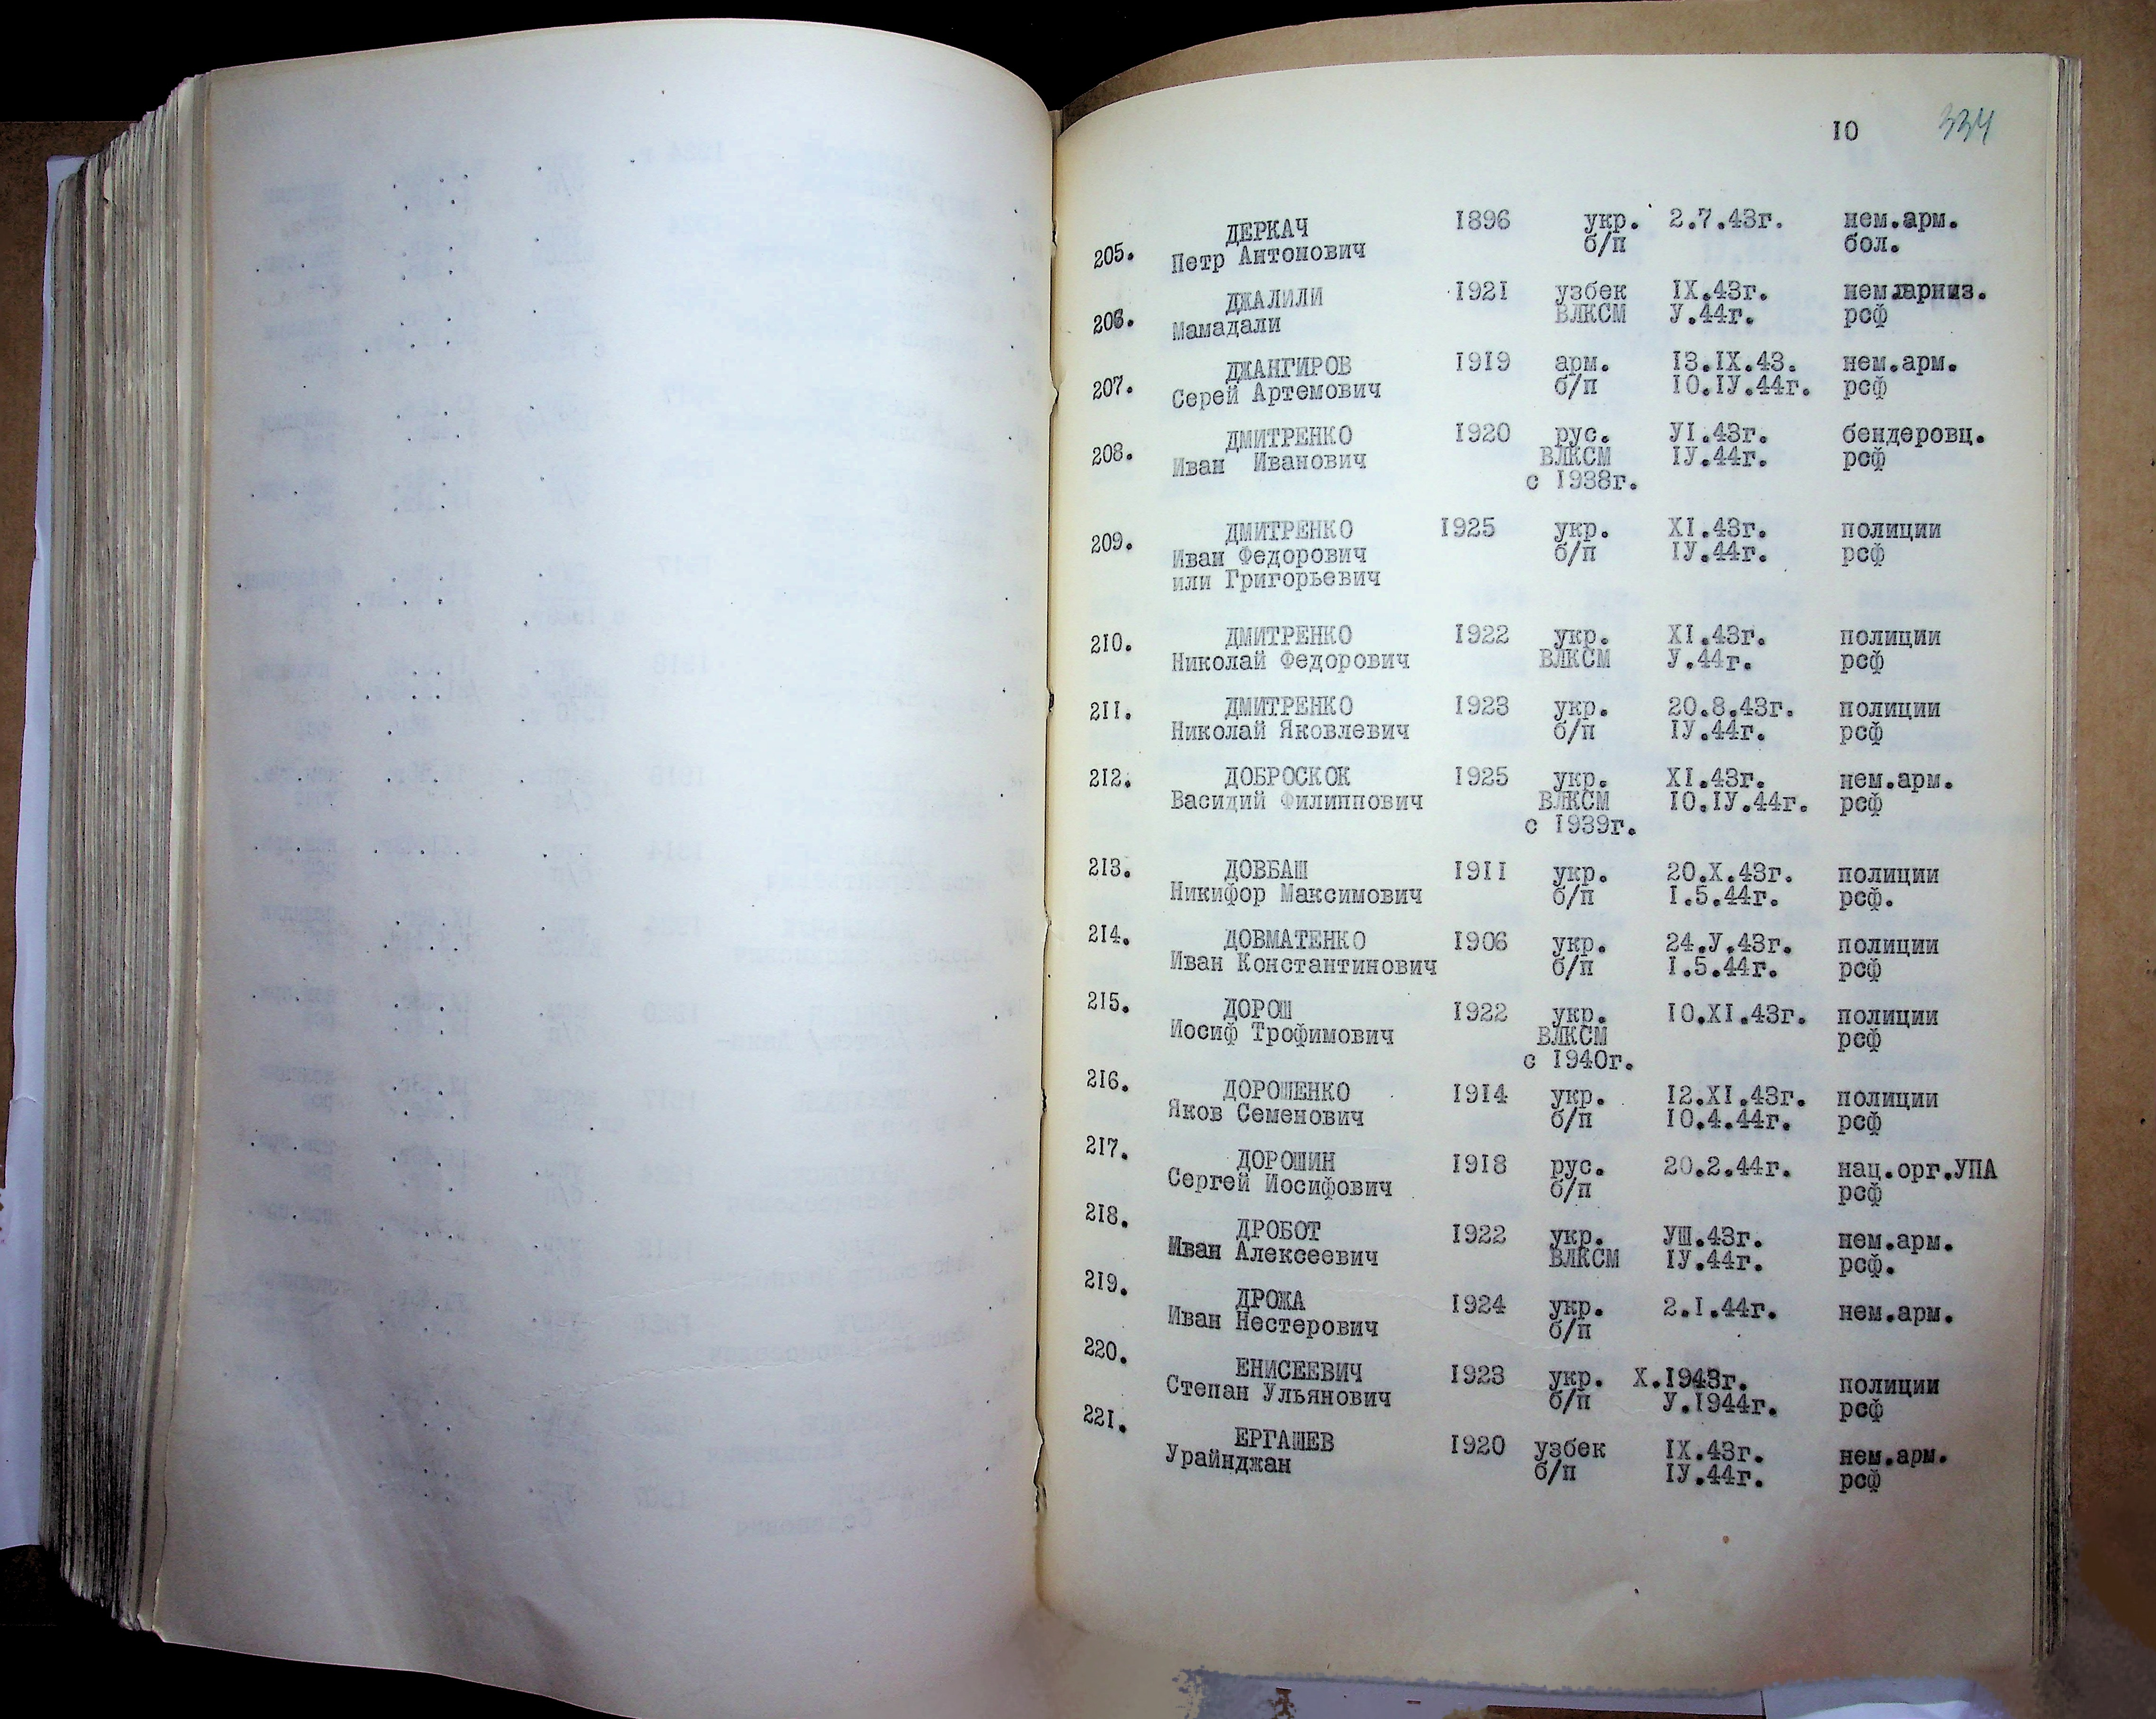 10 334
ДЕРКАЧ 1896 укр. 2.7.43г. нем.арм.
205. Петр Антонович б/п бол.
ДЖАЛИЛИ 1921 узбек IX.43г. нем.гарниз.
206. Мамадали ВЛКСМ У.44г. рсф
ДЖАНГИРОВ 1919 арм. 13.IX.43. нем.арм.
207. Серей Артемович б/п 10.IУ.44г. рсф
ДМИТРЕНКО 1920 рус. УI.43г. бендеровц.
208. Иван Иванович ВЛКСМ IУ.44г. рсф
с 1938г.
209. ДМИТРЕНКО 1925 укр. XI.43г. полиции
Иван Федорович б/п IУ.44г. рсф
или Григорьевич
210. ДМИТРЕНКО 1922 укр. XI.43г. полиции
Николай Федорович ВЛКСМ У.44г. рсф
211. ДМИТРЕНКО 1923 укр. 20.8.43г. полиции
Николай Яковлевич б/п IУ.44г. рсф
212. ДОБРОСКОК 1925 укр. XI.43г. нем.арм.
Васидий Филиппович ВЛКСМ 10.IУ.44г. рсф
с 1939г.
213. ДОВБАШ 1911 укр. 20.X.43г. полиции
Никифор Максимович б/п 1.5.44г. рсф.
214. ДОВМАТЕНКО 1906 укр. 24.У.43г. полиции
Иван Константинович б/п 1.5.44г. рсф
215. ДОРОШ 1922 укр. 10.XI.43г. полиции
Иосиф Трофимович ВЛКСМ рсф
с 1940г.
216. ДОРОШЕНКО 1914 укр. 12.XI.43г. полиции
Яков Семенович б/п 10.4.44г. рсф
217. ДОРОШИН 1918 рус. 20.2.44г. нац.орг.УПА
Сергей Иосифович б/п рсф
218. ДРОБОТ 1922 укр. УШ.43г. нем.арм.
Иван Алексеевич ВЛКСМ IУ.44г. рсф.
219. ДРОЖА 1924 укр. 2.I.44г. нем.арм.
Иван Нестерович б/п
220. ЕНИСЕЕВИЧ 1923 укр. X.1943г. полиции
Степан Ульянович б/п У.1944г. рсф
221. ЕРГАШЕВ 1920 узбек IX.43г. нем.арм.
Урайнджан б/п IУ.44г. рсф